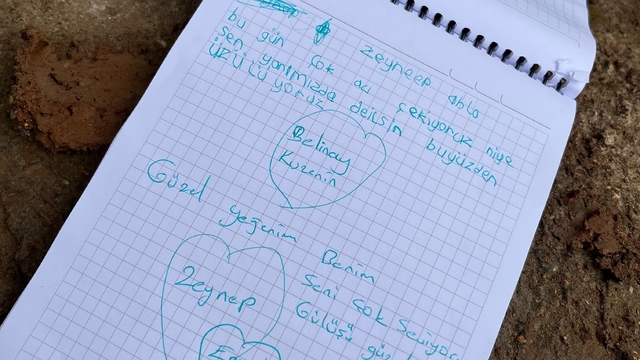 Zeyneep abla
bu gün çok acı çekiyoruk niye
sen yanımızda deilsin buyüzden
üzülüyoruz
Belinay
Kuzenin
Güzel yeğenim Benim
Zeynep
Seni çok Seviyor
Gülüşü